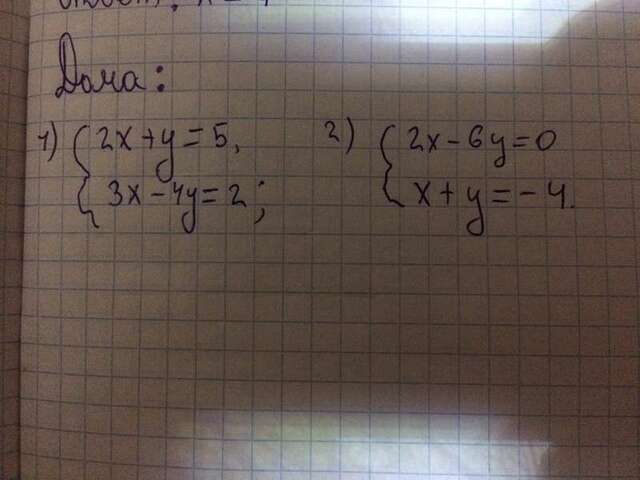 Дома:
1) { 2x+y=5,
3x-4y=2;
2) { 2x-6y=0
x+y=-4.